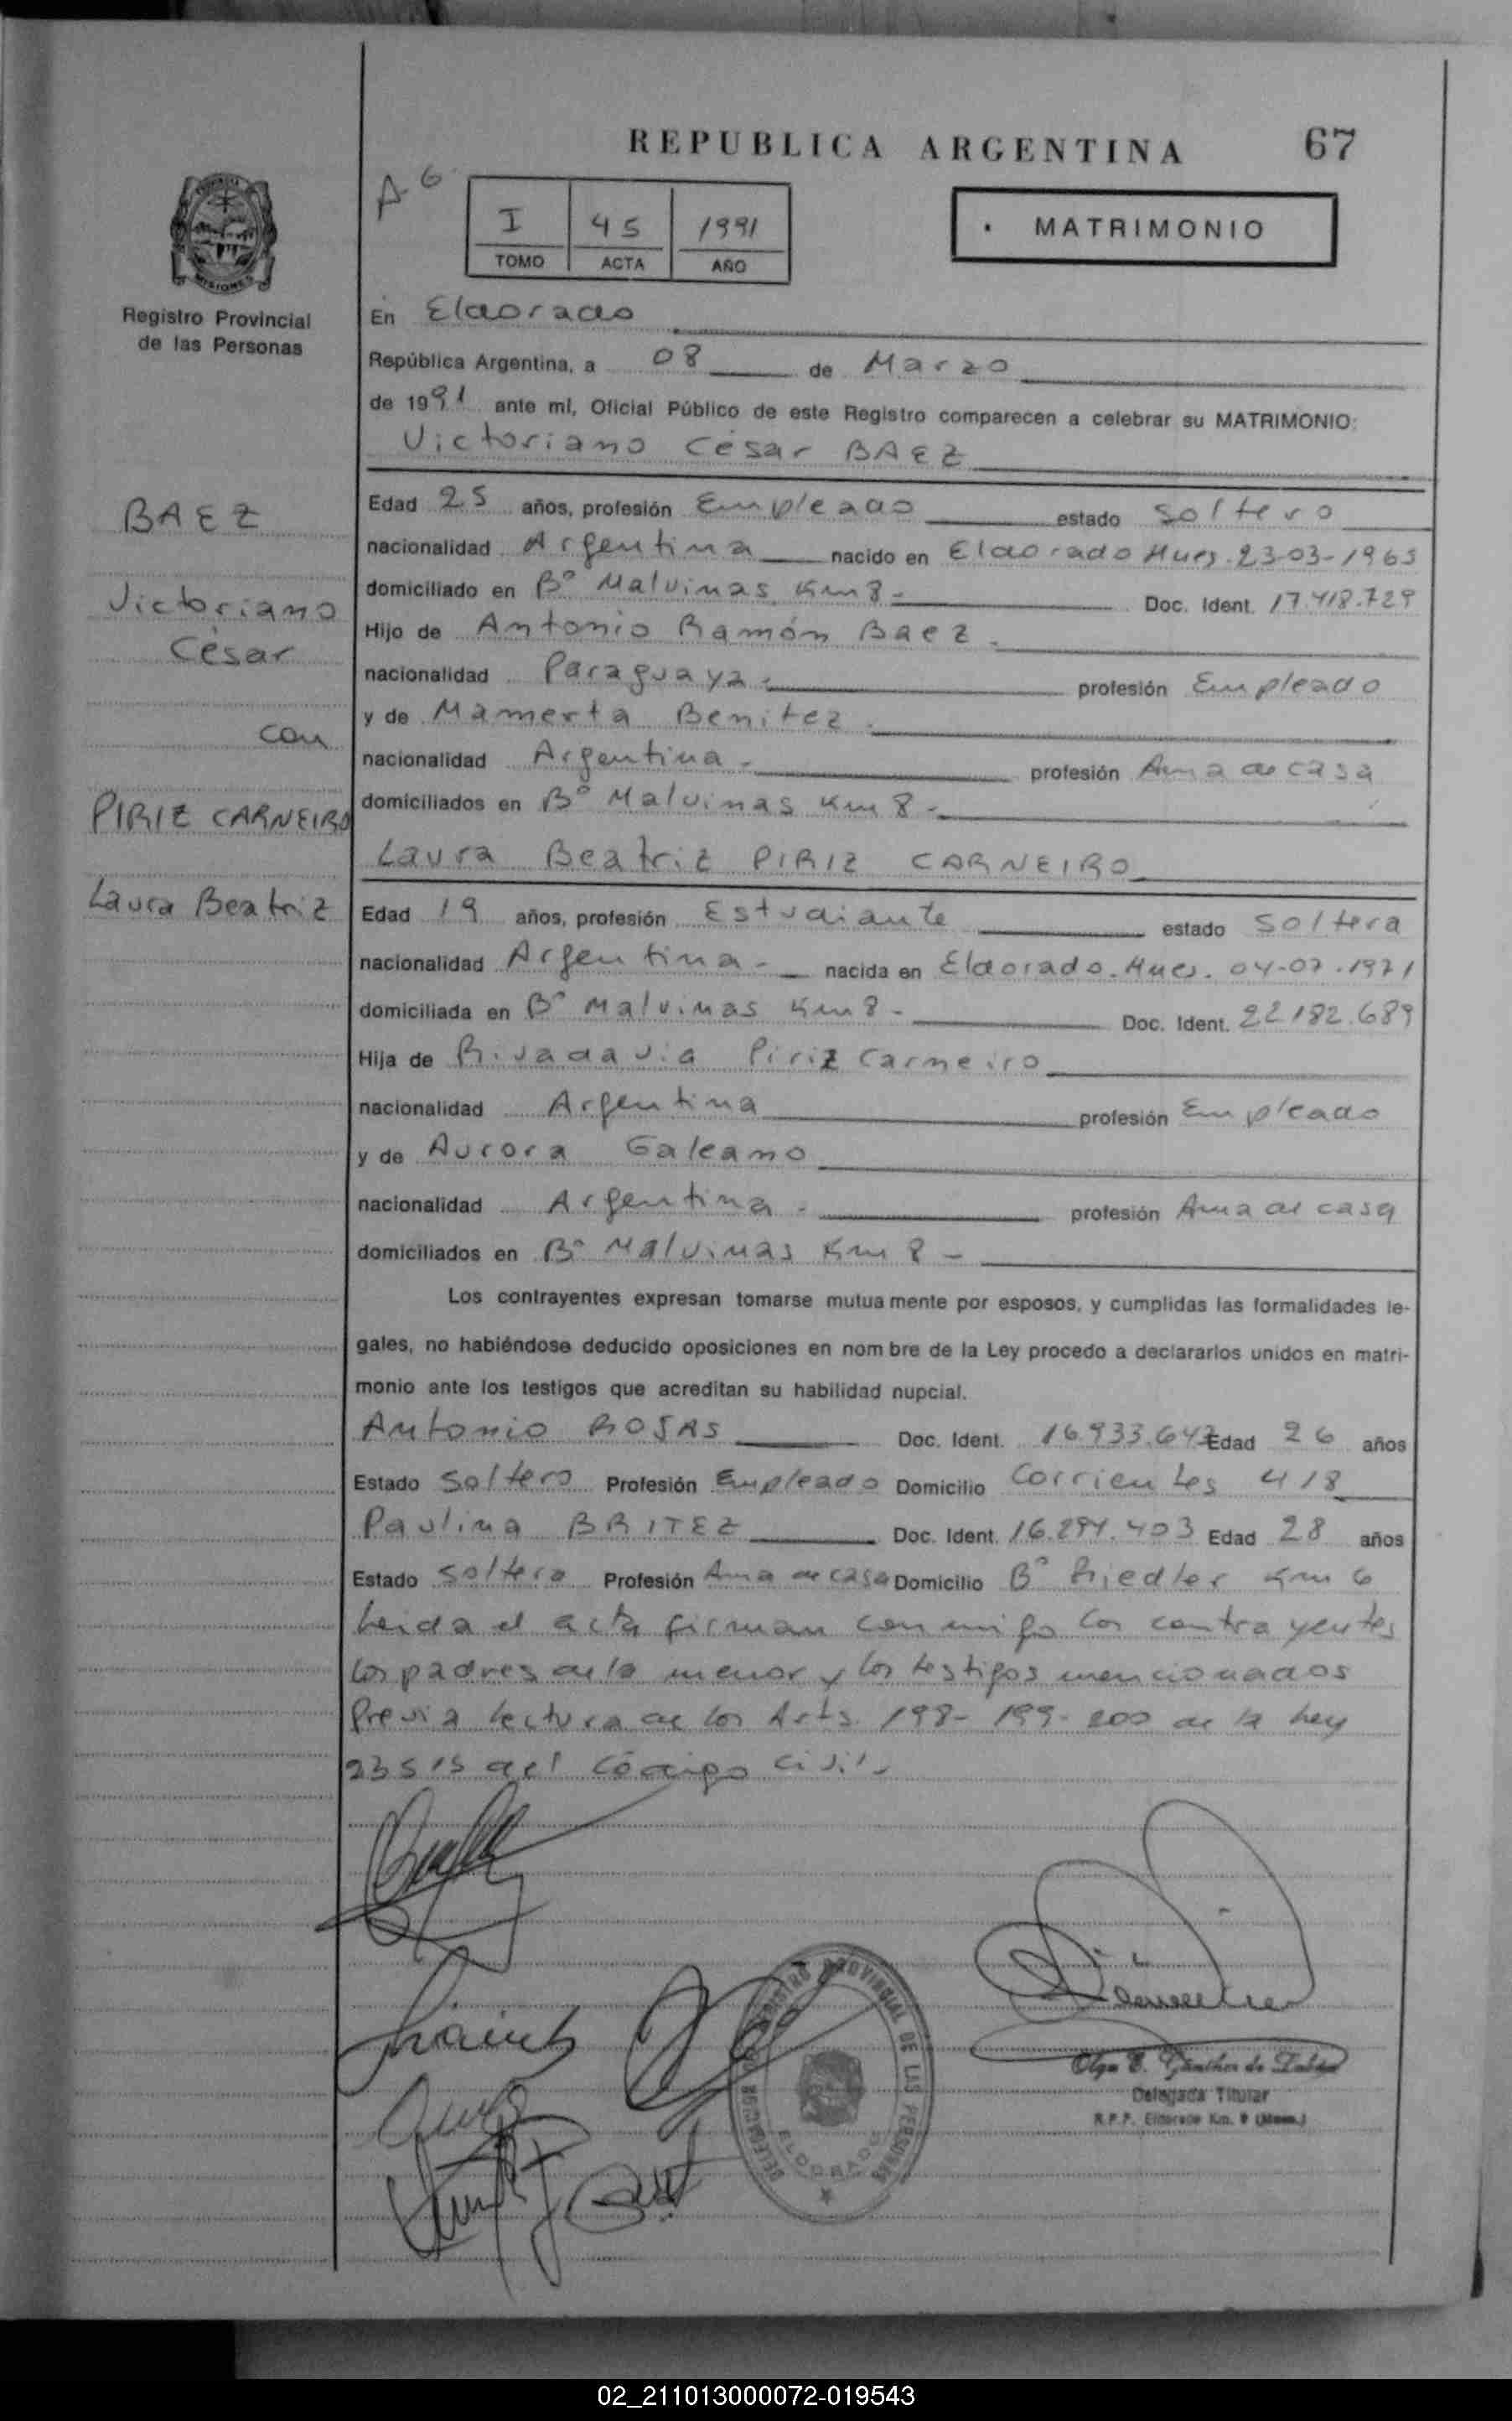 REPUBLICA ARGENTINA
67
A-6
I
45
1991
TOMO
ACTA
AÑO
MATRIMONIO
MISIONES
Registro Provincial
de las Personas
En Eldorado
República Argentina, a 08 de Marzo
de 1991 ante mí, Oficial Público de este Registro comparecen a celebrar su MATRIMONIO:
Victoriano César BAEZ
BAEZ
Victoriano
César
con
PIRIZ CARNEIRO
Laura Beatriz
Edad 25 años, profesión Empleado estado Soltero
nacionalidad Argentina nacido en Eldorado Mnes. 23-03-1965
domiciliado en Bº Malvinas Km 8 - Doc. Ident. 17.418.729
Hijo de Antonio Ramón Baez -
nacionalidad Paraguaya - profesión Empleado
y de Mamerta Benitez -
nacionalidad Argentina - profesión Ama de casa
domiciliados en Bº Malvinas Km 8 -
Laura Beatriz PIRIZ CARNEIRO
Edad 19 años, profesión Estudiante estado Soltera
nacionalidad Argentina - nacida en Eldorado. Mnes. 04-07-1971
domiciliada en Bº Malvinas Km 8 - Doc. Ident. 22.182.689
Hija de Rivadavia Piriz Carneiro
nacionalidad Argentina profesión Empleado
y de Aurora Galeano
nacionalidad Argentina - profesión Ama de casa
domiciliados en Bº Malvinas Km 8 -
Los contrayentes expresan tomarse mutuamente por esposos, y cumplidas las formalidades le-
gales, no habiéndose deducido oposiciones en nombre de la Ley procedo a declararlos unidos en matri-
monio ante los testigos que acreditan su habilidad nupcial.
Antonio ROJAS Doc. Ident. 16.933.647 Edad 26 años
Estado Soltero Profesión Empleado Domicilio Corrientes 418
Paulina BRITEZ Doc. Ident. 16.294.403 Edad 28 años
Estado Soltera Profesión Ama de casa Domicilio Bº Riedler Km 6
Leida el acta firman conmigo los contrayentes
los padres de la menor y los testigos mencionados
Previa lectura de los Arts. 198- 199- 200 de la Ley
23515 del Código Civil -
REGISTRO PROVINCIAL DE LAS PERSONAS
ELDORADO
Delegada Titular
R.P.P. Eldorado Km. 9 (Mnes.)
02_211013000072-019543